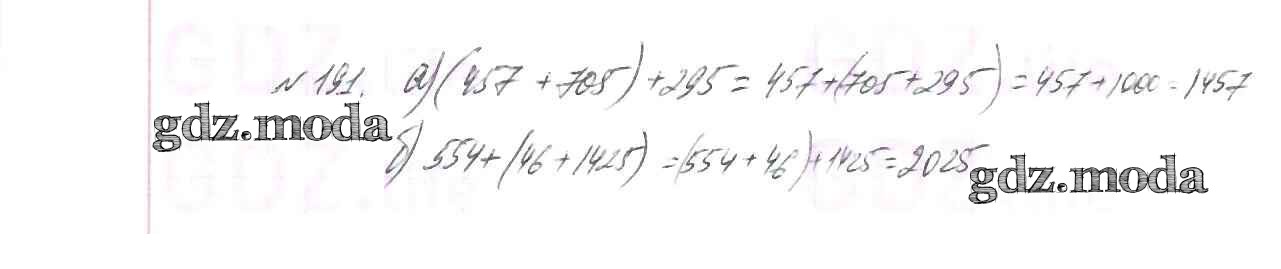 №191. а) (457 + 705) + 295 = 457 + (705 + 295) = 457 + 1000 = 1457
gdz.moda
б) 554 + (46 + 1425) = (554 + 46) + 1425 = 2025
gdz.moda